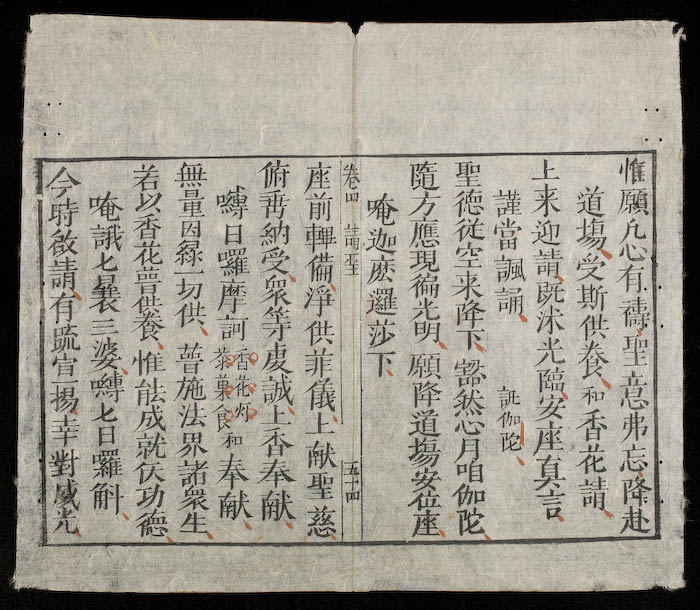 惟願凡心有禱聖意弗忘降赴
道塲受斯供養和香花請
上来迎請既沐光臨安座真言
謹當諷誦 訨伽陀
聖德從空来降下豁然心月咱伽陀
隨方應現徧光明願降道塲安位座
唵迦庅邏莎下
卷四 請聖 五十四
座前轉備淨供菲儀上献聖慈
俯垂納受衆等虔誠上香奉献
嚩日囉摩訶香花灯
茶菓食和奉献
無量因緣一切供普施法界諸衆生
若以香花普供養惟能成就仸功德
唵誐七曩三婆嚩七日囉斛
今時啟請有疏宣揚幸對威光